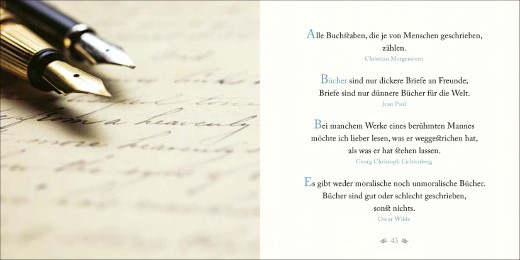 a heavenly
Alle Buchstaben, die je von Menschen geschrieben,
zählen.
Christian Morgenstern
Bücher sind nur dickere Briefe an Freunde;
Briefe sind nur dünnere Bücher für die Welt.
Jean Paul
Bei manchem Werke eines berühmten Mannes
möchte ich lieber lesen, was er weggestrichen hat,
als was er hat stehen lassen.
Georg Christoph Lichtenberg
Es gibt weder moralische noch unmoralische Bücher.
Bücher sind gut oder schlecht geschrieben,
sonst nichts.
Oscar Wilde
43